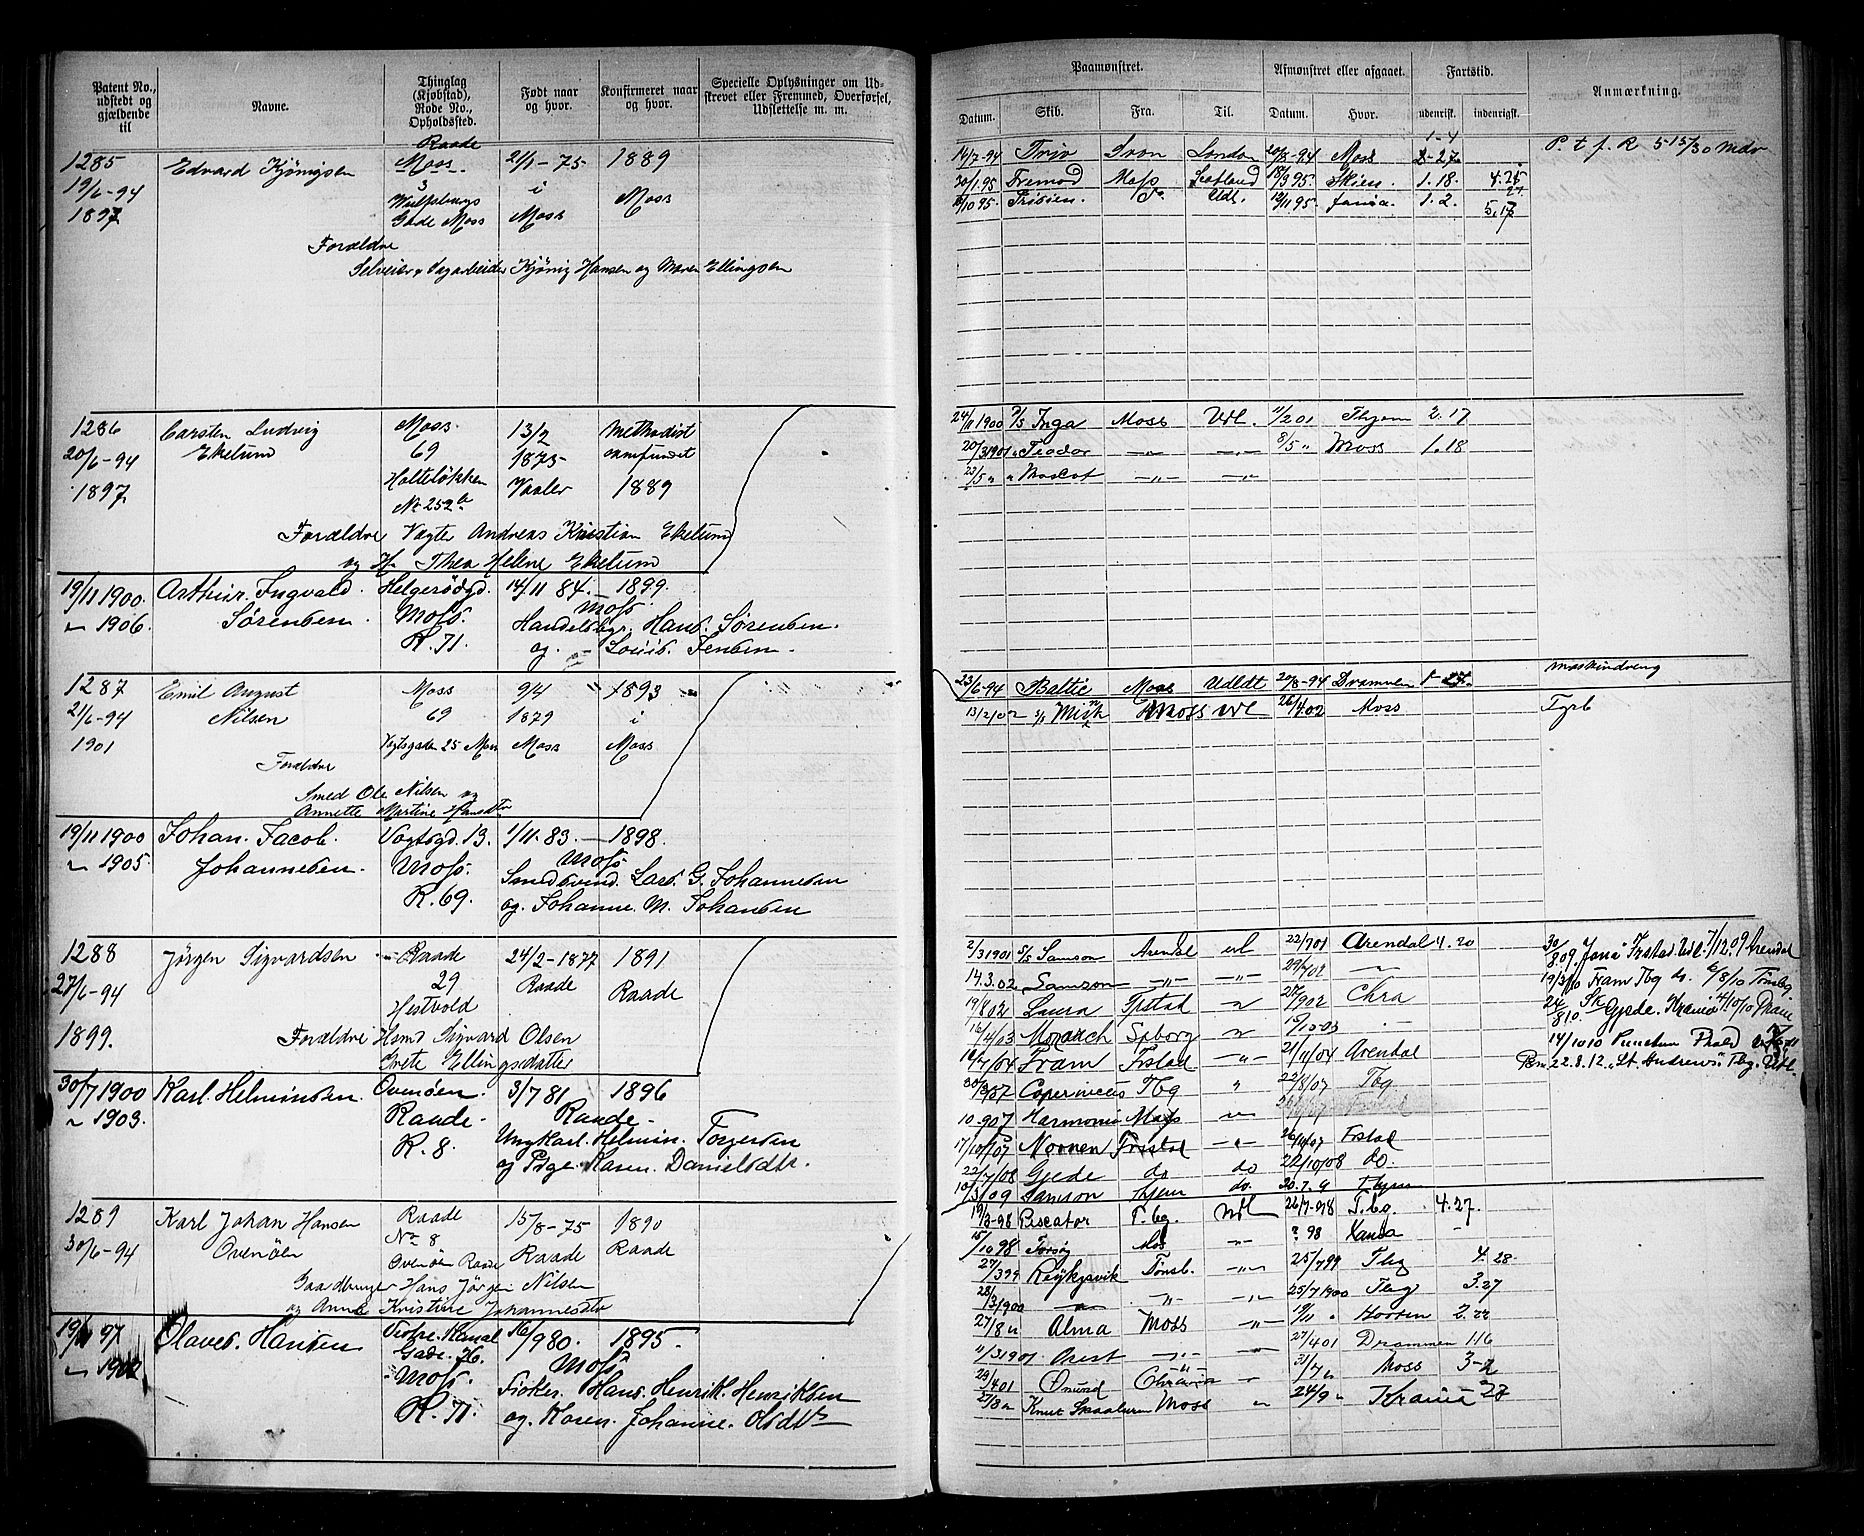 Patent No., udstedt og gjældende til
Navne.
Thinglag (Kjøbstad), Rode No., Opholdssted.
Født naar og hvor.
Konfirmeret naar og hvor.
Specielle Oplysninger om Udskrevet eller Fremmed, Overførsel, Udslettelse m. m.
1285
19/6-94
1897
Edvard Kjönigsen
Raade
Moss
3
Wulfsbergs
Gade Moss
21/1-75
i
Moss
1889
Moss
Forældre
Selveier Dagarbeider Kjönig Hansen og Maren Ellingsen
1286
20/6-94
1897
Carsten Ludvig
Ekelund
Moss
69
Holteløkken
No 252 a
13/2
1875
Vaaler
Methodist
samfundet
1889
Forældre Vagter Andreas Kristian Ekelund
og H. Thea Helene Ekelund
19/11 1900
" 1906.
Arthur. Ingvald.
Sørensen.
Helgerødgd.
Moss.
R. 71.
14/11 84. — 1899.
Moss.
Handelsbgr. Hans. Sørensen.
og. — Lovis. Jensen.
1287
21/6-94
1901
Emil August
Nilsen
Moss
69
Vogtsgaden 25 Moss
9/4
1879
Moss
1893
i
Moss
Forældre
Smed Ole Nilsen og
Annette Martine Hansdtr
19/11 1900
" 1905.
Johan. Jacob.
Johannesen.
Vogtsgd. 13.
Moss.
R. 69.
1/11. 83. — 1898.
Moss.
Smedsvend. Lars. G. Johannesen
og. Johanne. M. Johansen
1288
27/6-94
1899.
Jörgen Sigvardsen
Raade
29
Hestvold
24/2-1877
Raade
1891
Raade
Forældre Hsmd Sigvard Olsen
Grete Ellingsdatter
30/7 1900
" 1903.
Karl. Helminsen.
Ovenøen.
Raade.
R. 8.
3/7 81
1896
Raade.
Ungkarl. Helmin. Torgersen
og Pige. Karen. Danielsdtr.
1289
30/6-94
Karl Johan Hansen
Ovenöen
Raade
No 8
Ovenöen Raade
15/8-75
Raade
1890
Raade
Gaardbruger Hans Jörgen Nilsen
og Anne Kristine Johannesdtr
19/11 97
Olaves. Hansen
Vestre. Kanal
Gade. 76.
Moss.
R. 71.
16/9 80.
1895.
Moss
Fisker. Hans. Henrik. Henriksen
og. Karen. Johanne. Olsdtr
Paamønstret.
Afmønstret eller afgaaet.
Fartstid.
Anmærkning.
Datum.
Skib.
Fra.
Til.
Datum.
Hvor.
udenrigsk.
indenrigsk.
14/7-94 Trio London 20/8-94 Moss 27
30/1.95 Fremad Moss Scotland 18/9 95 Skien. 1.18.
10 95. Do. Udl. 12/11 95 1.2. 5.17
24/11 1900 Inga Moss Udl. 11/2 01 2.17
20/3 1901 Teodor —"— —"— 8/5 " Moss 1.18
23/5 " " Mascot —"— —"—
Maskindreng
23/6-94 Baltic Moss Udldt 20/8-94 Drammen
13/2/02 Moss Udl 26/4 02 Moss Fyrb
2/3 1901 S/S Samson Arendal 22/7 01 Arendal 4.20
14.3.02 Samson —"— —"— 29/7 02 —"—
19/8 02 Laura Fstad " 9 02 Chra
16/4/03 Monarch Spborg " 10-03
04 Fram Frstad —"— 21/11/04 Arendal
07 Copernicus Tbg " 22/8/07 Tbg
10.907 Harmonie Moss
17/10/07 Nornen Fristad —"— 26/11/07 Frstad
22/7/08 Gjede do do 22/10/08 do.
10/3/09 Samson do. 20.7.9
30/8 09. Frstad Udl. 7/12.09 Arendal
19/3/10 Fram Tbg do. 6/8/10 Tönsbg.
24/8 10. Gjede. 4/10/10
14/10 10
22.8.12. "St Andrews" Tbg.
19/3-98 Piscator T.bg. Udl 26/7-98 T.bg. 4.27.
15/10 98 Mos —"— ? 98
27/3 99 Reykjavik Tönsb. —"— 25/7 99 Tbg 4.28.
28/3 1900 —"— —"— —"— 25/7 1900 Tbg 3.27
27/8 " Alma Moss —"— 19/11 " Horten 2.22
11/3 1901. Orest —"— —"— 27/4 01 Drammen 1 16
29/4 01 Önund Christiania " 31/7 " Moss 3-2
27/8 " Knut Skaaluren Moss " 24/9 " Krania 27